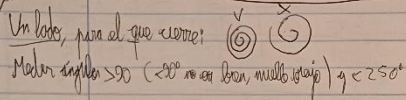 Un lado, para el que cierre: V X
Medir ángulos >90 (<90° no bien, ) y <250°